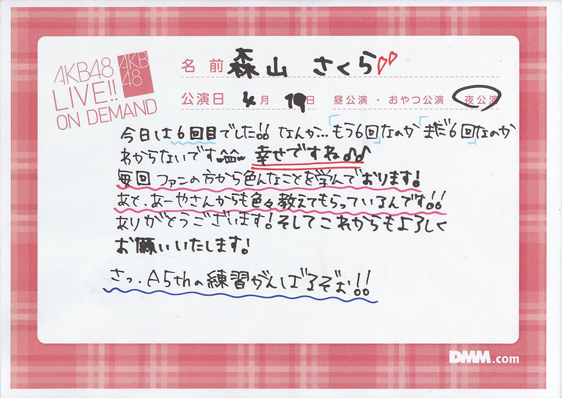 AKB48
LIVE!!
ON DEMAND
AKB
48
名前 森山 さくら
公演日 4月 19日 昼公演・おやつ公演 夜公演
今日は6回目でした!! なんか…「もう6回」なのか「まだ6回」なのか
わからないです 幸せですね♪♪
毎回ファンの方から色んなことを学んでおります!
あと、あーやさんからも色々教えてもらっているんです!!
ありがとうございます!そしてこれからもよろしく
お願いいたします!
さっ.A5thの練習がんばるぞぉ!!
DMM.com